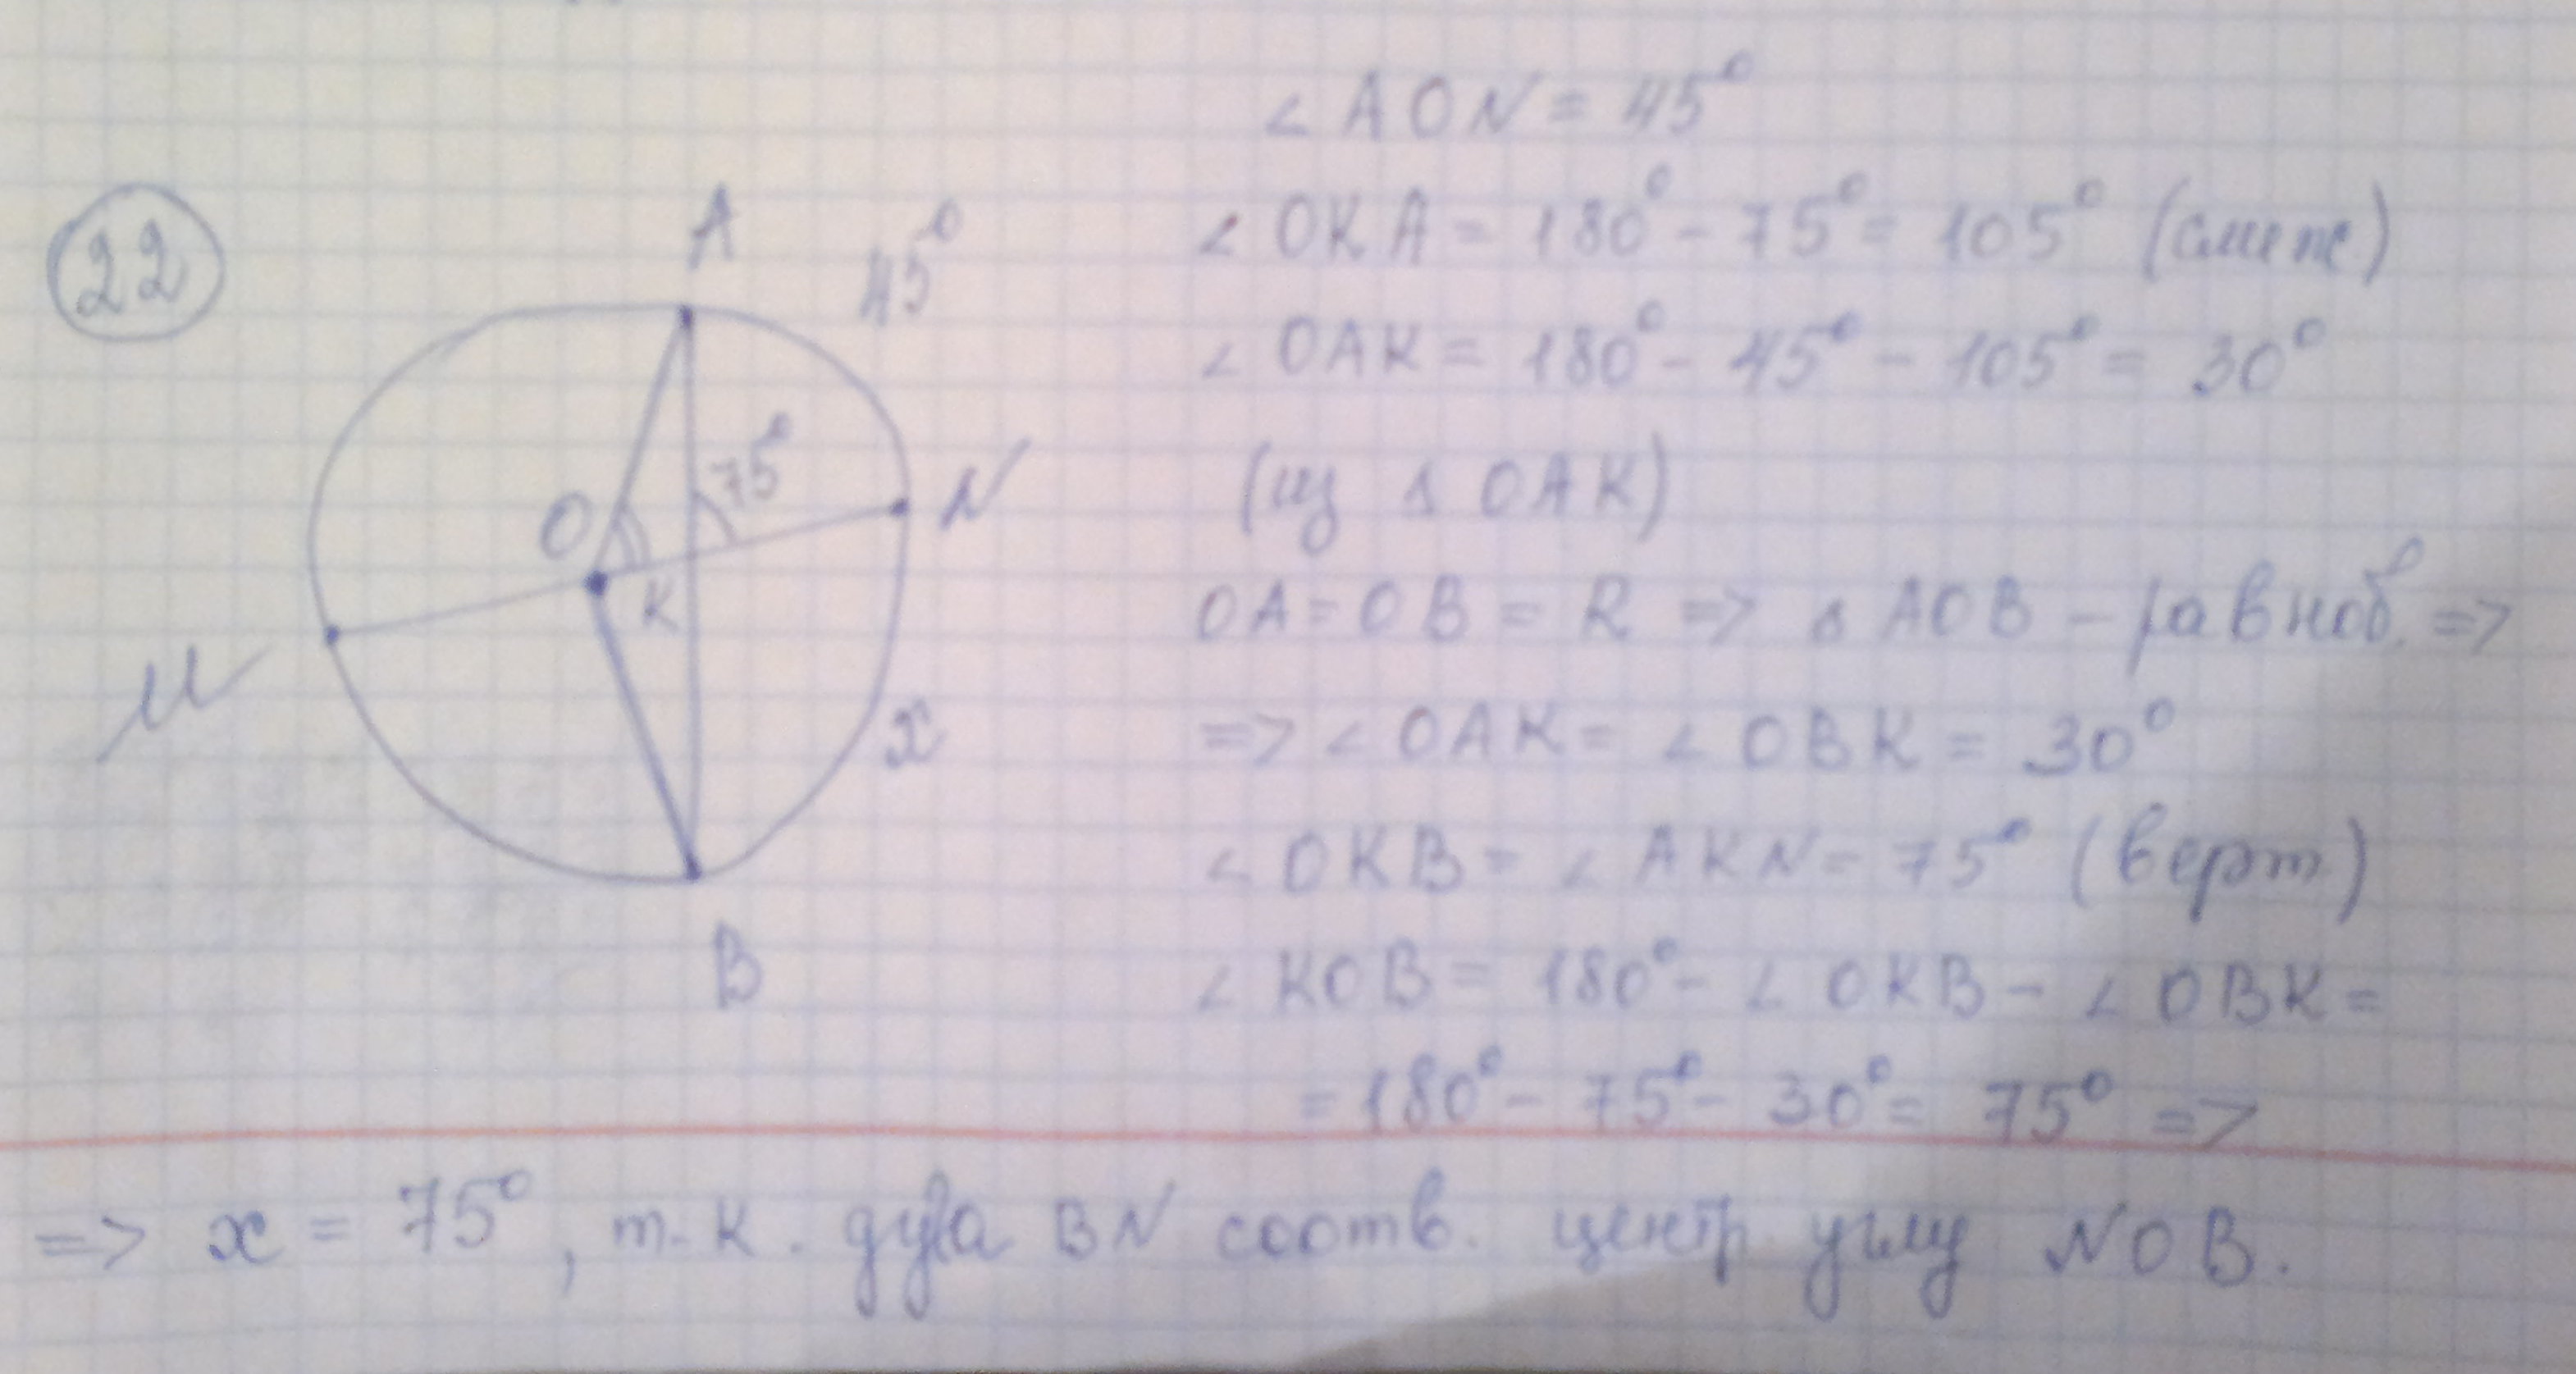 22
A
45°
O
75°
N
K
M
x
B
∠ AON = 45°
∠ OKA = 180° - 75° = 105° (смеж)
∠ OAK = 180° - 45° - 105° = 30°
(из Δ OAK)
OA = OB = R => Δ AOB - равноб. =>
=> ∠ OAK = ∠ OBK = 30°
∠ OKB = ∠ AKN = 75° (верт.)
∠ KOB = 180° - ∠ OKB - ∠ OBK =
= 180° - 75° - 30° = 75° =>
=> x = 75°, т.к. дуга BN соотв. центр. углу NOB.